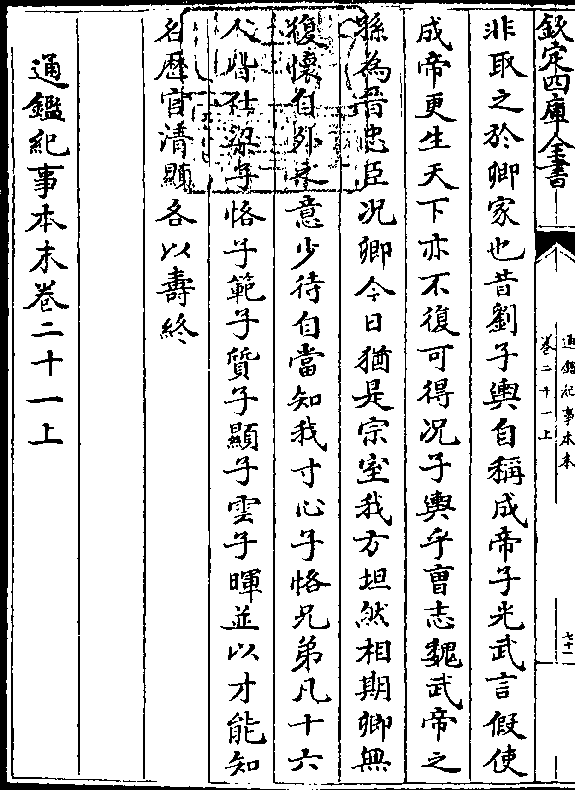 欽定四庫全書
通鑑紀事本末
卷二十一上
七十一
非取之於卿家也昔劉子輿自稱成帝子光武言假使
成帝更生天下亦不復可得况子輿乎曹志魏武帝之
孫為晉忠臣况卿今日猶是宗室我方坦然相期卿無
復懷自外之意少待自當知我寸心子恪兄弟凡十六
人皆仕梁子恪子範子質子顯子雲子暉並以才能知
名歴官清顯各以壽終
通鑑紀事本末卷二十一上